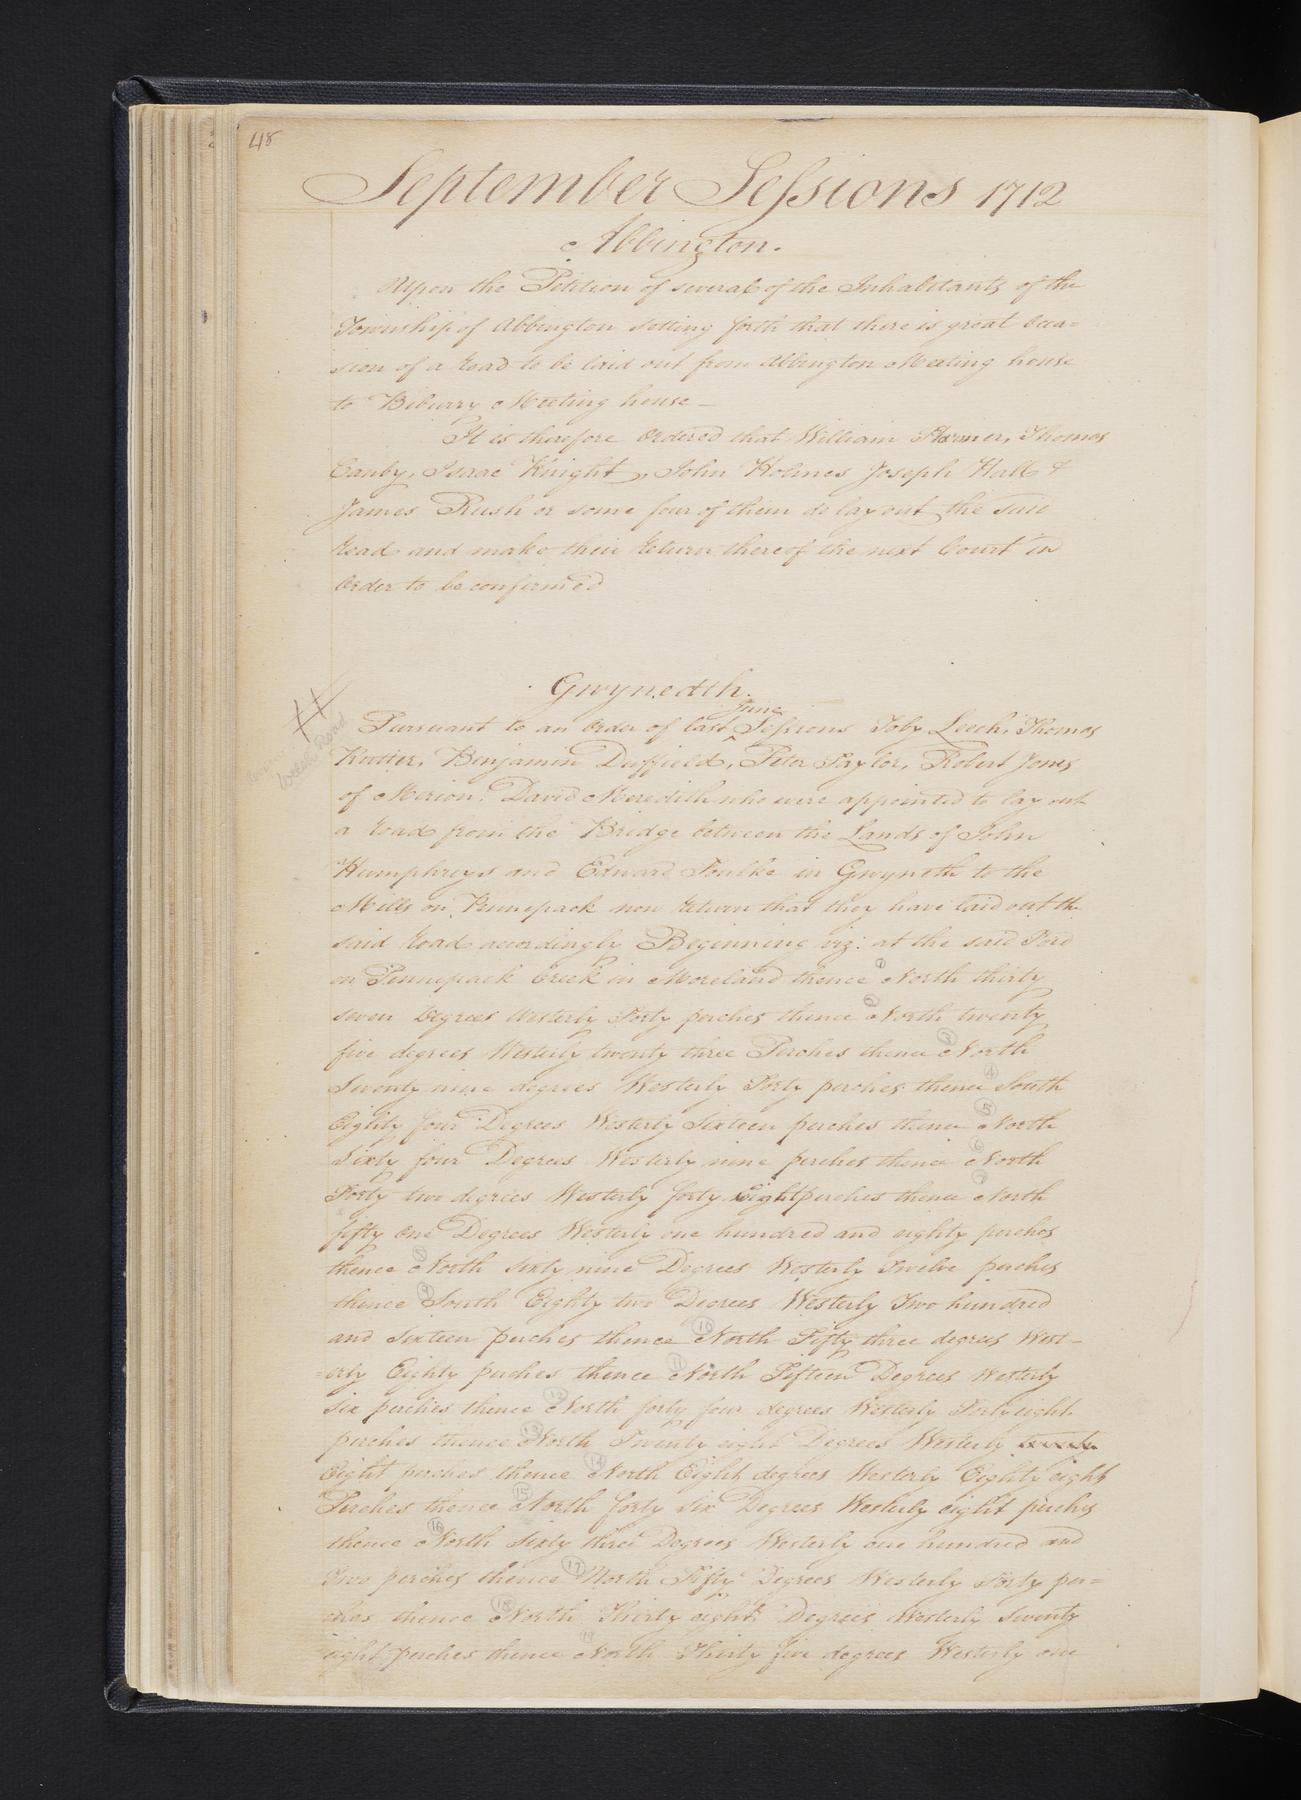 48
September Sessions 1712
Abbington.
Upon the Petition of several of the Inhabitants of the
Township of Abbington setting forth that there is great Occa=
sion of a Road to be laid out from Abbington Meeting house
to Biberry Meeting house —
It is therefore Ordered that William Harmer, Thomas
Canby, Isaac Knight, John Holmes Joseph Hall &
James Rush or some four of them do lay out the said
Road and make their Return thereof the next Court in
Order to be confirmed
Gwynedth.
June
Pursuant to an Order of last ^ Sessions Toby Leech, Thomas
Rutter, Benjamin Duffield, Peter Taylor, Robert Jones
of Merion: David Meredith who were appointed to lay out
a Road from the Bridge between the Lands of John
Humphreys and Edward Foulke in Gwyneth to the
Mills on Pennepack now Return that they have laid out the
said Road accordingly Beginning viz: at the said Ford
on Pennepack Creek in Moreland thence ① North thirty
seven Degrees Westerly Forty perches thence ② North twenty
five degrees Westerly twenty three Perches thence ③ North
Seventy nine degrees Westerly Forty perches thence ④ South
Eighty four Degrees Westerly Sixteen perches thence ⑤ North
Sixty four Degrees Westerly nine perches thence ⑥ North
Forty two degrees Westerly forty Eight perches thence ⑦ North
fifty one Degrees Westerly one hundred and eighty perches
thence ⑧ North sixty nine Degrees Westerly Twelve perches
thence ⑨ South Eighty two Degrees Westerly Two hundred
and Sixteen perches thence ⑩ North Fifty three degrees West-
=erly Eighty perches thence ⑪ North Fifteen Degrees Westerly
Six perches thence ⑫ North forty four degrees Westerly Forty eight
perches thence ⑬ North Twenty eight Degrees Westerly
Eight perches thence ⑭ North Eight degrees Westerly Eighty eight
Perches thence ⑮ North forty six Degrees Westerly eight perches
thence ⑯ North Sixty three Degrees Westerly one hundred and
Two perches thence ⑰ North Fifty Degrees Westerly Forty per=
ches thence ⑱ North Thirty eight Degrees Westerly Twenty
eight perches thence ⑲ North Thirty five degrees Westerly one